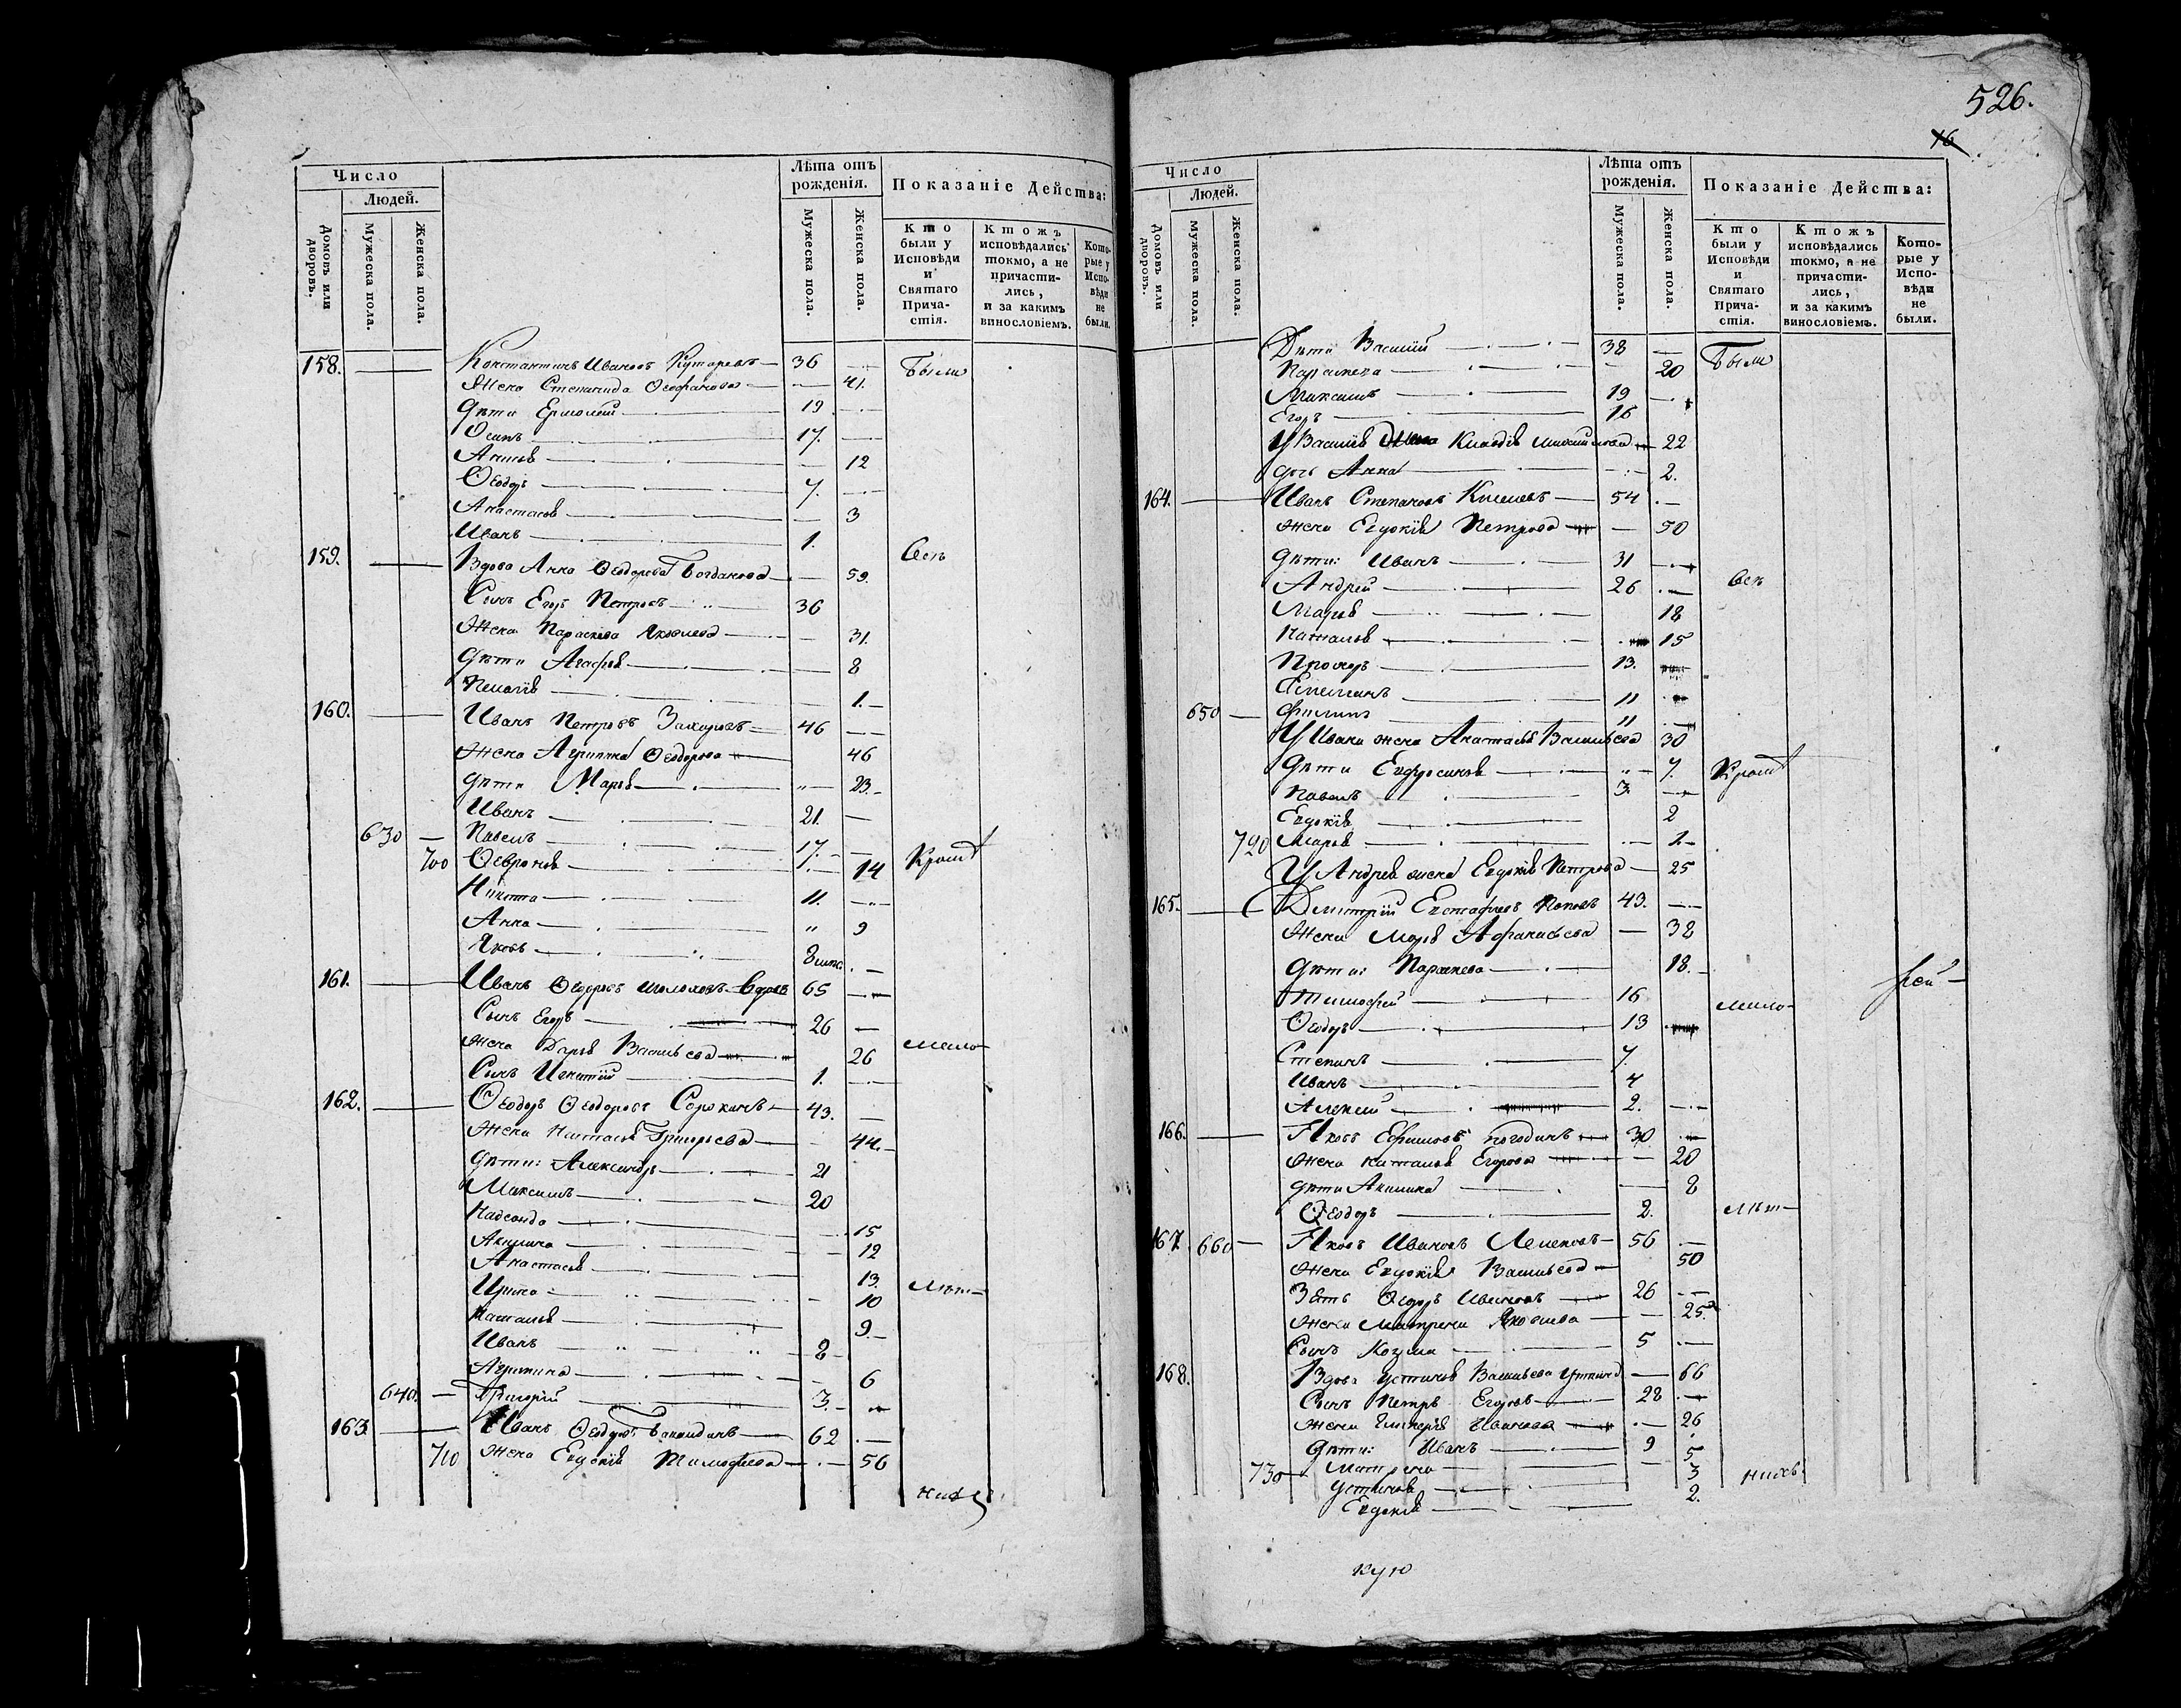 Число
Людей.
Домовъ или дворовъ.
Мужеска пола.
Женска пола.
Лѣта отъ рожденія.
Мужеска пола.
Женска пола.
Показаніе Действа:
Кто были у Исповѣди и Святаго Причастія.
Ктожъ исповѣдались токмо, а не причастились, и за какимъ винословіемъ.
Которые у Исповѣди не были.
158. Константинъ Ивановъ 36 Были
Жена Степанида Ѳеофанова 41.
Дѣти Ермолай 19
Осипъ 17.
12
Ѳеодоръ 7.
Анастасія 3
Иванъ 1.
159. Вдова Анна Ѳеодорова Богданова 59. Всѣ
Сынъ Егоръ Петровъ 36
Жена Параскева Яковлева 31.
Дѣти Агафія 8
Пелагія 1.
160. Иванъ Петровъ Захаровъ 46
Жена Агрипина Ѳеодорова 46
Дѣти Марія 23.
Иванъ 21.
630 Павелъ 17.
700 Ѳевронія 14 Кромѣ
Никита 11.
Анна 9
Яковъ 8
161. Иванъ Ѳедоровъ вдовъ 65
Сынъ Егоръ 26
Жена Дарія Васильева 26 мало
Сынъ Игнатій 1.
162. Ѳеодоръ Ѳеодоровъ Сорокинъ 43.
Жена Наталія Григорьева 44.
Дѣти: Александръ 21
Максимъ 20
Надежда 15
Акилина 12
Анастасія 13.
Ирина 10 лѣт
Наталія 9.
Иванъ 8
Агрипина 6
640. Григорій 3.
163. Иванъ Ѳеодоровъ 62
710 Жена Евдокія Тимофеева 56
нихъ
526.
16
Число
Людей.
Домовъ или дворовъ.
Мужеска пола.
Женска пола.
Лѣта отъ рожденія.
Мужеска пола.
Женска пола.
Показаніе Действа:
Кто были у Исповѣди и Святаго Причастія.
Ктожъ исповѣдались токмо, а не причастились, и за какимъ винословіемъ.
Которые у Исповѣди не были.
Дѣти Василій 38 Были
Параскева 20
Максимъ 19
Егоръ 16
У Василія Жена Клавдія 22
дочь Анна 2.
164. Иванъ Степановъ Киселевъ 54
Жена Евдокія Петрова 50
Дѣти: Иванъ 31
Андрей 26 Всѣ
Марія 18
Наталія 15
Прохоръ 13.
Емелианъ 11
650 Филипъ 11
У Ивана жена Анастасія Васильева 30
Дѣти Евфросинія 7. Кромѣ
Павелъ 3.
Евдокія 2
720 Марія 1
У Андрея жена Евдокія Петрова 25
165. Димитрій Евстафіевъ Поповъ 43.
Жена Марія Афанасьева 38
Дѣти: Параскева 18.
Тимофей 16 мало
Ѳеодоръ 13
Степанъ 7
Иванъ 4
Алексей 2.
166. Яковъ Ефимовъ Погодинъ 30
Жена Наталія Егорова 20
Дѣти Акилина 8
Ѳеодоръ 2. лѣт
167. 660 Яковъ Ивановъ 56
Жена Евдокія Васильева 50
Зять Ѳедоръ Ивановъ 26
Жена Матрена Яковлева 25
Сынъ Козма 5
168. Вдова Устинія Васильева 66
Сынъ Петръ Егоровъ 28
Жена Гликерія Иванова 26
Дѣти: Иванъ 9
Матрена 5
730 Устинія 3 нихъ
Евдокія 2.